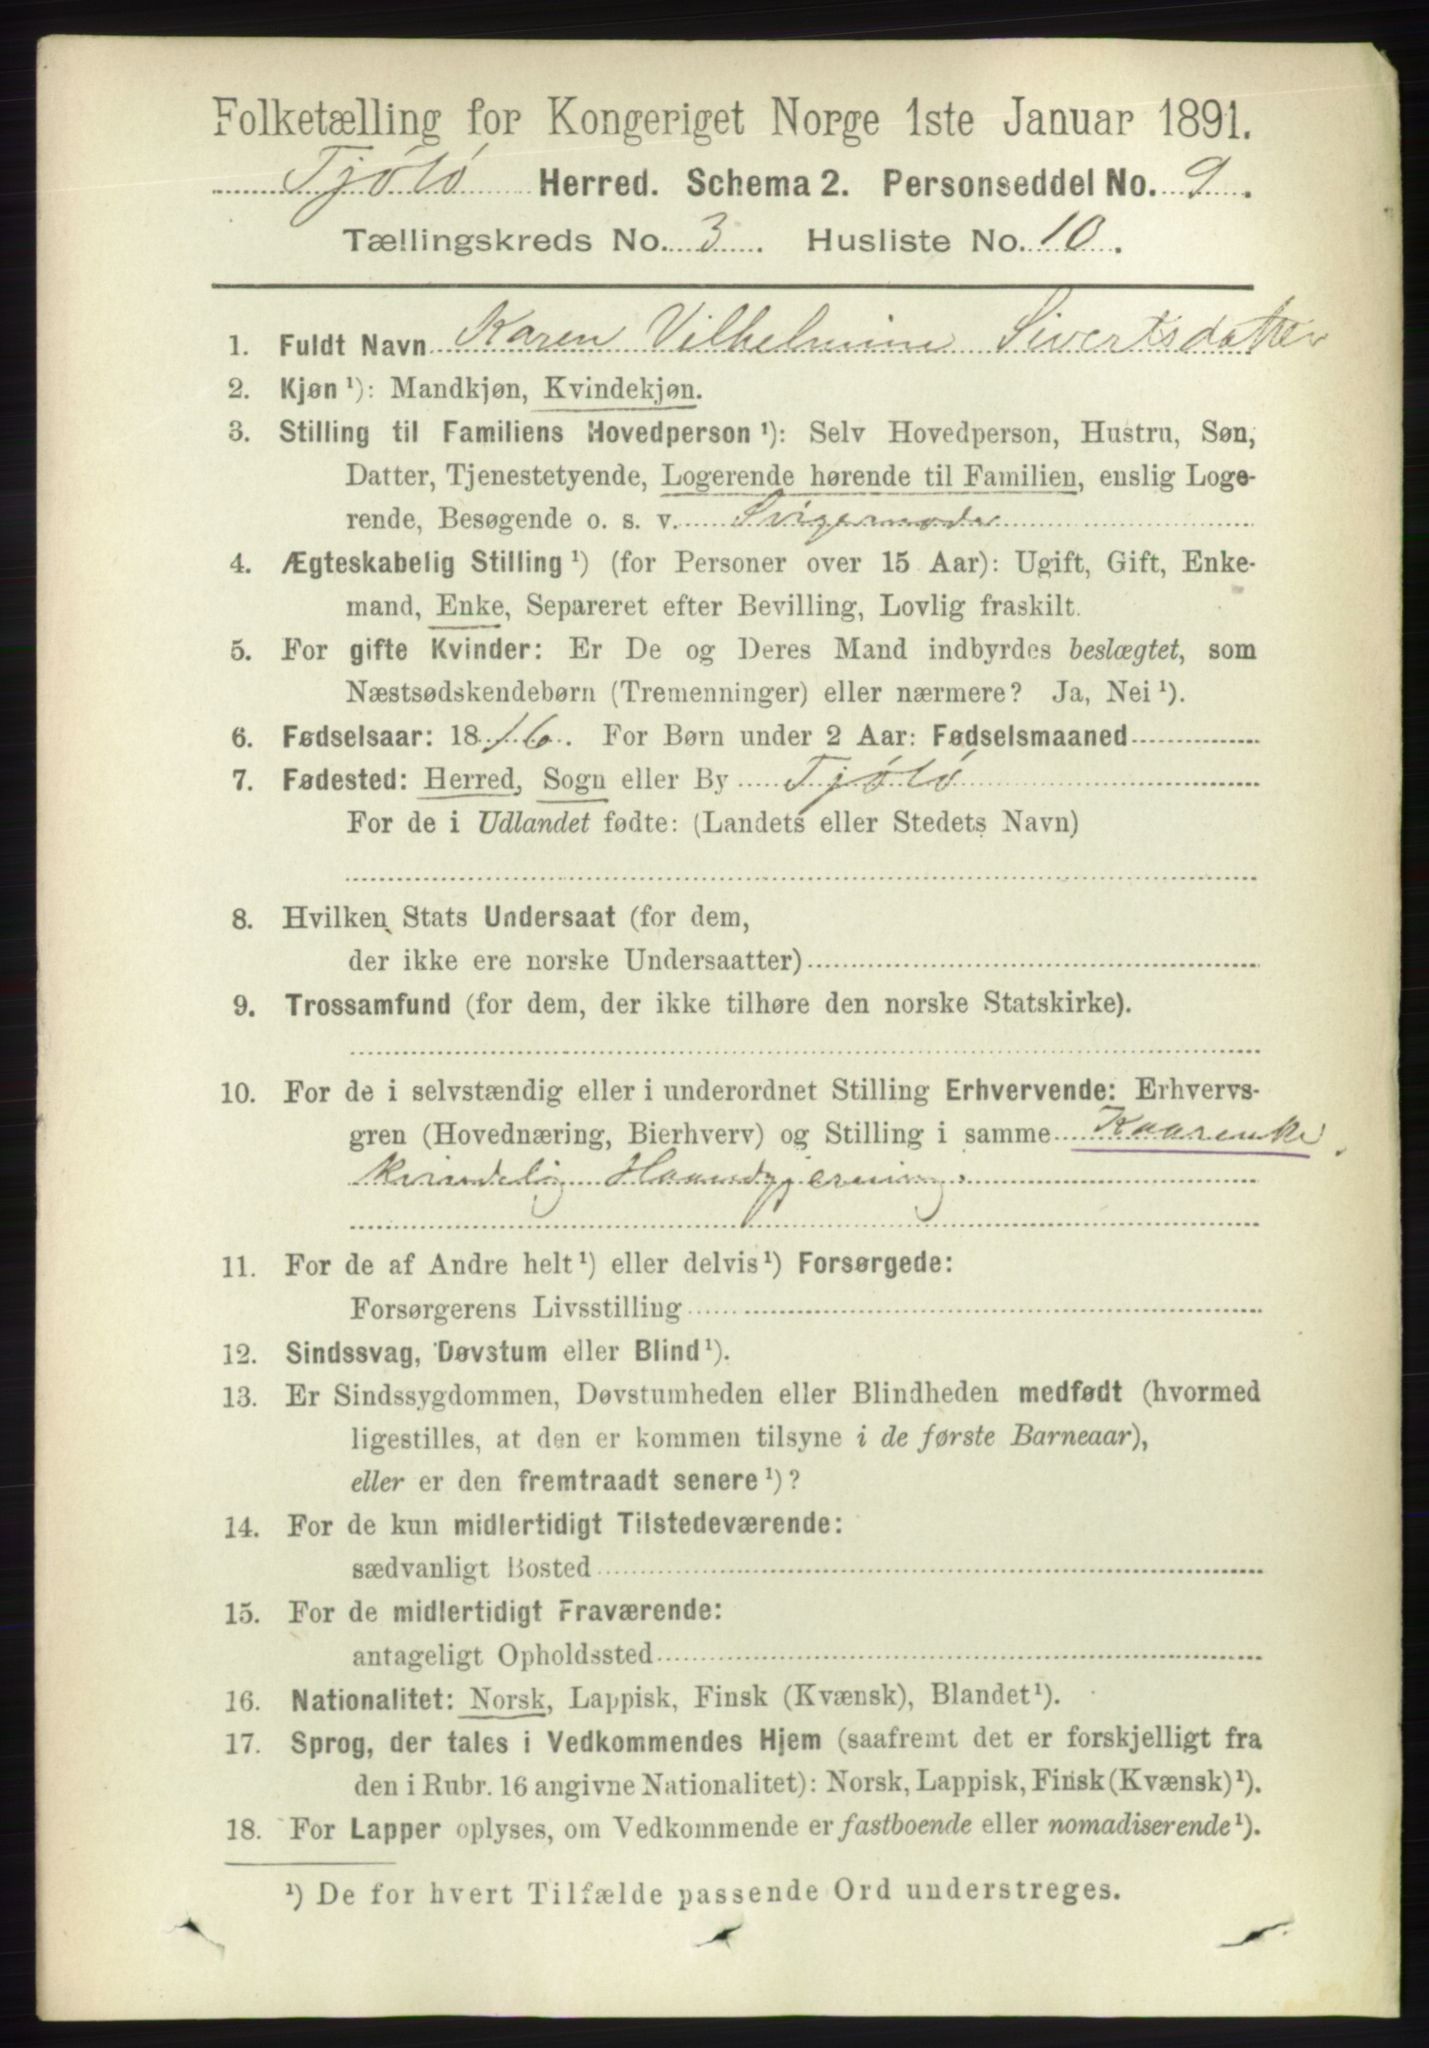 Folketælling for Kongeriget Norge 1ste Januar 1891.
Tjølø Herred. Schema 2. Personseddel No. 9.
Tællingskreds No. 3. Husliste No. 10.
1. Fuldt Navn Karen Vilhelmine Sivertsdatter
2. Kjøn ¹): Mandkjøn, Kvindekjøn.
3. Stilling til Familiens Hovedperson ¹): Selv Hovedperson, Hustru, Søn,
Datter, Tjenestetyende, Logerende hørende til Familien, enslig Loge-
rende, Besøgende o. s. v. Svigermoder
4. Ægteskabelig Stilling ¹) (for Personer over 15 Aar): Ugift, Gift, Enke-
mand, Enke, Separeret efter Bevilling, Lovlig fraskilt.
5. For gifte Kvinder: Er De og Deres Mand indbyrdes beslægtet, som
Næstsødskendebørn (Tremenninger) eller nærmere? Ja, Nei ¹).
6. Fødselsaar: 1816. For Børn under 2 Aar: Fødselsmaaned
7. Fødested: Herred, Sogn eller By Tjølø
For de i Udlandet fødte: (Landets eller Stedets Navn)
8. Hvilken Stats Undersaat (for dem,
der ikke ere norske Undersaatter)
9. Trossamfund (for dem, der ikke tilhøre den norske Statskirke).
10. For de i selvstændig eller i underordnet Stilling Erhvervende: Erhvervs-
gren (Hovednæring, Bierhverv) og Stilling i samme Kaarenke
kvindelig Haandgjerning.
11. For de af Andre helt ¹) eller delvis ¹) Forsørgede:
Forsørgerens Livsstilling
12. Sindssvag, Døvstum eller Blind ¹).
13. Er Sindssygdommen, Døvstumheden eller Blindheden medfødt (hvormed
ligestilles, at den er kommen tilsyne i de første Barneaar),
eller er den fremtraadt senere ¹)?
14. For de kun midlertidigt Tilstedeværende:
sædvanligt Bosted
15. For de midlertidigt Fraværende:
antageligt Opholdssted
16. Nationalitet: Norsk, Lappisk, Finsk (Kvænsk), Blandet ¹).
17. Sprog, der tales i Vedkommendes Hjem (saafremt det er forskjelligt fra
den i Rubr. 16 angivne Nationalitet): Norsk, Lappisk, Finsk (Kvænsk) ¹).
18. For Lapper oplyses, om Vedkommende er fastboende eller nomadiserende ¹).
¹) De for hvert Tilfælde passende Ord understreges.